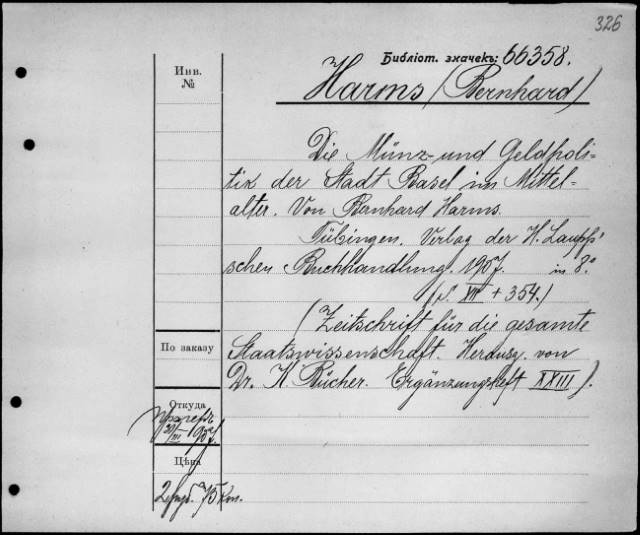 326
Библіот. значекъ: 66358.
Harms (Bernhard)
Инв.
№
Die Münz- und Geldpoli-
tik der Stadt Basel im Mittel-
alter. Von Bernhard Harms.
Tübingen. Verlag der H. Laupp'
schen Buchhandlung. 1907. in 8°.
(S. VII + 354.)
(Zeitschrift für die gesamte
По заказу
Staatswissenschaft. Herausg. von
Dr. K. Bücher. Ergänzungsheft XXIII).
Откуда
1907
Цѣна
2 руб. 75 коп.